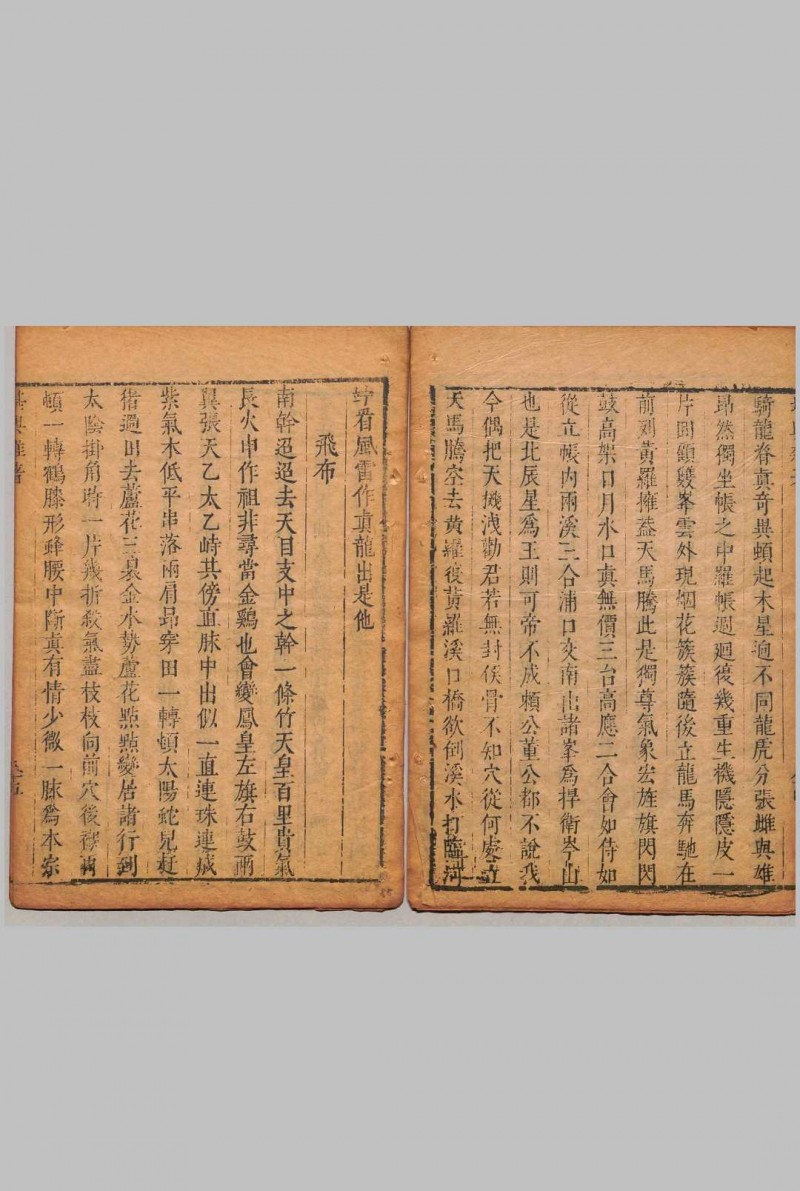 騎龍脊真奇異頓起木星逈不同龍虎分張雌與雄
昂然獨坐帳之中羅帳迴迴復幾重生機隱隱皮一
片回頭幾峯雲外現烟花簇簇隨後立龍馬奔馳在
前列黃羅擁葢天馬騰此是獨尊氣象宏旌旗閃閃
鼓高架日月水口真無價三台高應二合會如侍如
從立帳內兩溪三合浦口交南出諸峯爲捍衛岑山
也是北辰星爲王則可帝不成賴公董公都不說我
今偶把天機洩勸君若無封侯骨不知穴從何處立
天馬騰空去黃羅復黃羅溪口橋欲倒溪水打臨河
竚看風雷作真龍出是他
飛布
南幹迢迢去天目支中之幹一條竹天皇百里貴氣
長火申作祖非尋當金鷄也會變鳳皇左旗右鼓兩
翼張天乙太乙峙其傍直脉中出似一直連珠連城
紫氣木低平串落兩肩昂穿田一轉頓太陽蛇兒赶
猪過田去蘆花三裊金水勢蘆花點點變居諸行到
太陰掛角時一片幾折殺氣盡枝枝向前穴後
頓一轉鶴膝形蜂腰中斷真有情少微一脉爲本宗